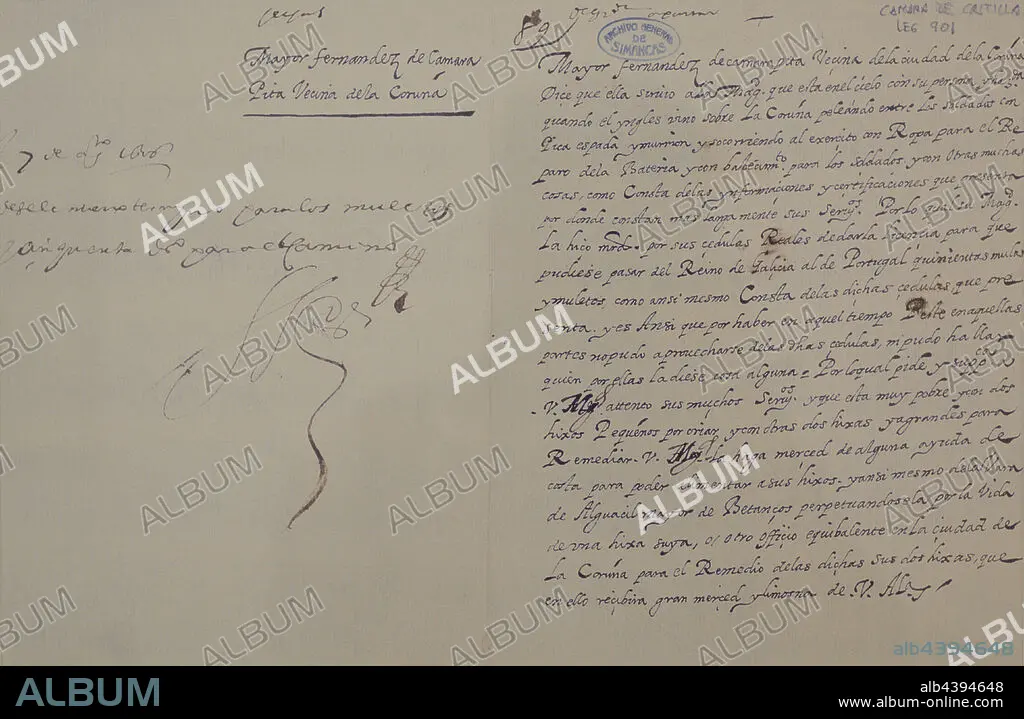 Mayor fernandez de Camara
Pita Vecina dela Coruña
7 de 1606
para los muletos
para el camino
CAMARA DE CASTILLA
LEG 901
ARCHIVO GENERAL
DE
SIMANCAS
Mayor fernandez decamarapita Vecina dela ciudad dela Coruña
Dice que ella siruio a la Mag. que esta en el cielo con su persona y haz.da
quando el yngles vino sobre la Coruña peleando entre los soldados con
Pica espada ymurrion y socorriendo al exercito con Ropa para el Re
paro dela Bateria y con bastecim.to para los soldados, y con otras muchas
cosas, como Consta delas ynformaciones y certificaciones que presenta
por donde constan mas largamente sus Seruy.os Por lo qual su Mag.
la hiço mrd. por sus cedulas Reales de darla licencia para que
pudiese pasar del Reino de Galicia al de Portugal quinientas mulas
y muletos, como ansi mesmo Consta delas dichas cedulas, que pre
senta. y es Ansi que por haber en aquel tiempo Peste en aquellas
partes no pudo aprovecharse delas dhas cedulas, ni pudo hallar
quien por ellas la diese cosa alguna = Por lo qual pide y sup.ca
V. Mg. attento sus muchos Seruy.os y que esta muy pobre y con dos
hixos Pequeños por criar, y con otras dos hixas ya grandes para
Remediar. V. Mg. la haga merced de alguna ayuda de
costa para poder alimentar a sus hixos. y ansi mesmo dela Vara
de Alguacil mayor de Betanços perpetuandosela por la Vida
de vna hixa suya, o, otro officio equibalente en la ciudad de
La Coruña para el Remedio delas dichas sus dos hixas, que
en ello recibira gran merced y limosna de V. Al.
ALBUM
alb4394648
ALBUM
alb4394648
www.album-online.com